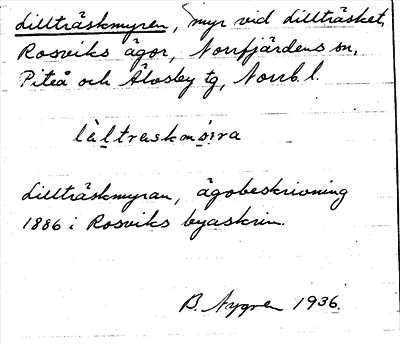 Lillträskmyren, myr vid Lillträsket,
Rosviks ägor, Norrfjärdens sn,
Piteå och Älvsby tg, Norrb. l.
làltraskmö̀ra
Lillträskmyran, ägobeskrivning
1886 i Rosviks byaskrin.
B. Nygren 1936.